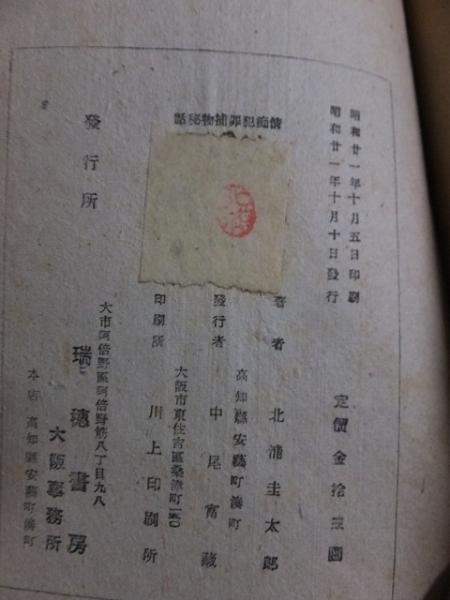 昭和廿一年十月五日印刷
昭和廿一年十月十日發行
定價金拾 圓
情痴犯罪捕物秘話
著者 北浦圭太郎
高知縣安藝町湊町
發行者 中尾寗藏
大阪市東住吉區桑津町一五〇
印刷所 川上印刷所
發行所
大市阿倍野區阿倍野筋八丁目九八
瑞穗書房
大阪事務所
本店 高知縣安藝町湊町